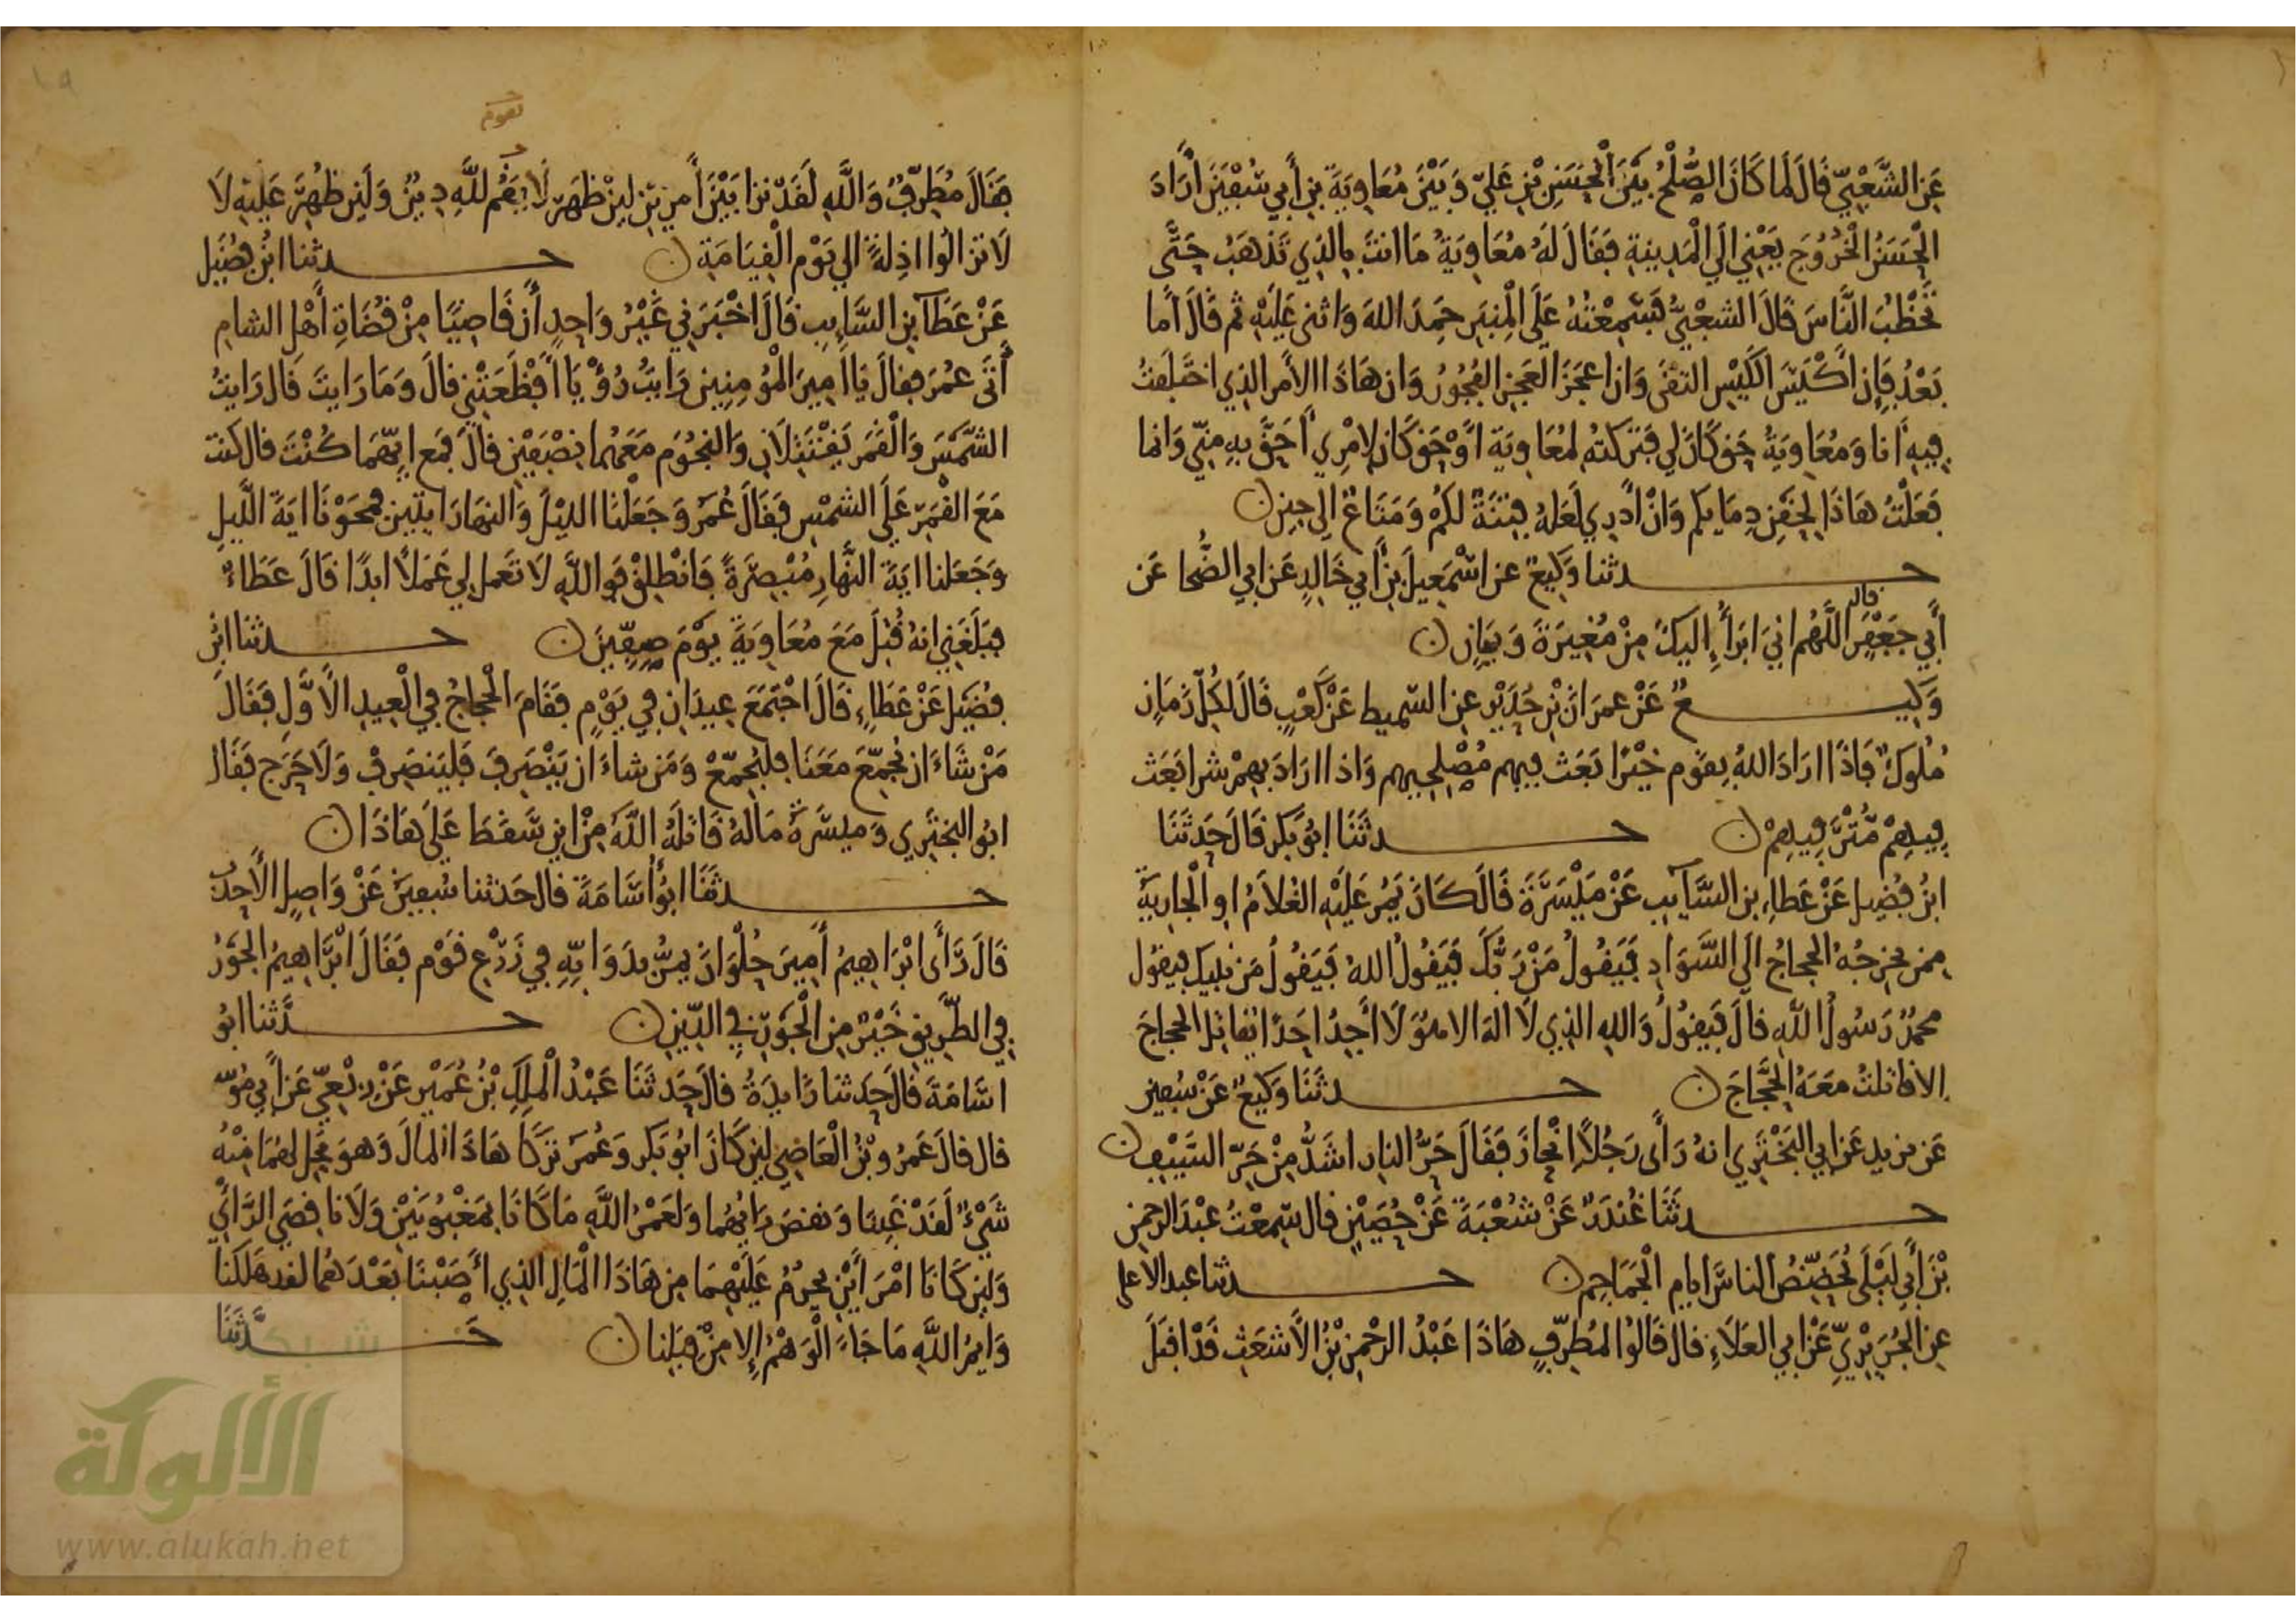 عَنِ الشَّعْبِيِّ قَالَ لَمَا كَانَ الصُّلْحُ بَيْنَ الْحَسَنِ بْنِ عَلِيٍّ وَبَيْنَ مُعَاوِيَةَ بْنِ أَبِي سُفْيَنَ أَرَادَ
الْحَسَنُ الْخُرُوجَ يَعْنِي إِلَى الْمَدِينَةِ فَقَالَ لَهُ مُعَاوِيَةُ مَا انتَ بِالذِي تَذْهَبُ حَتَّى
تَخْطُبَ النَّاسَ قَالَ الشعْبِيُّ فَسَمِعْتُهُ عَلَى الْمِنبَرِ حَمِدَ اللهَ وَاثنى عَلَيْهِ ثم قَالَ أَما
بَعْدُ فَإِن أَكْيَسَ الكَيْسِ التقَى وَان اعجَزَ العَجزِ الفُجُورُ وَان هَاذَا الامْر الذِي اختَلَفتُ
فِيهِ أنا وَمُعَاوِيَةُ حَق كَانَ لِي فَتَرَكتهُ لمُعَاوِيَة أَوْ حَق كَانَ لامْرِي أَحَقَّ بِهِ مِنِّي وَانما
فَعَلْتُ هَاذَا لِحَقنِ دِمَايكم وَانْ أَدْرِي لَعَلهُ فِتنَةٌ لكُمْ وَمَتَاعٌ إلى حِينٍ
حـدثنا وَكِيعٌ عن اسْمَعِيلَ بْنِ أَبِي خَالِدٍ عَن ابي الضُّحا عَن
أَبِي جَعْفَرٍ قال اللَّهُم انِي ابَرَأُ إِلَيكَ مِنْ مُغِيرَةَ وَبَيَانٍ
وَكِيـعٌ عَنْ عمرَانَ بْنِ حُدَيْرٍ عن السّميط عَنْ كَعْبٍ قَالَ لِكُلِّ زَمَانٍ
مُلُوكٌ فَاذَا ارَادَ اللهُ بِقَوْم خَيْرًا بَعَث فِيهِم مُصْلِحِيهِم وَاذا ارَادَ بِهِمْ شرا بَعَث
فِيهِمْ مُتْرَفِيهِمْ حـدثَنَا ابُو بَكر قَالَ حَدثَنَا
ابْنُ فُضِيل عَنْ عَطاءِ بن السَّآيب عَنْ مَيْسَرَةَ قَالَ كَانَ يَمُر عَلَيْهِ الغُلَامُ او الْجَارِيَةُ
ممن يخرجُهُ الحجاجُ الَى السَّوَادِ فَيَقُولُ مَنْ رَبُّكَ فَيَقُولُ اللهُ فَيَقُولُ مَن نَبِيكَ فيقول
محمدٌ رَسُولُ اللَّهِ قالَ فَيَقُولُ وَاللهِ الذِي لَا الهَ الا هُوَ لَا أَجِدُ احَدًا يُقَاتِل الحجاجَ
الا قاتلتُ مَعَهُ الحَجَّاجَ حـدثَنَا وَكِيعٌ عَنْ سُفين
عَن يزيد عَن ابي البَخْتَرِي انهُ رَأَى رَجُلًا انْحازَ فَقَالَ حَرُّ النار اشَدُّ مِنْ حَرِّ السَّيْفِ
حـدثَنَا غُندَرٌ عَنْ شُعْبَةَ عَنْ حُصَيْنٍ قال سَمِعْتُ عَبْدَ الرحمنِ
بْنَ أَبِي لَيْلَى يُحَضِّضُ الناسَ ايام الْجَمَاجِم حـدثنا عبد الاعلى
عن الجُرَيرِيِّ عَنْ ابي العَلَاءِ قال قَالُوا لمُطرِّفٍ هَاذَا عَبْدُ الرحْمنِ بْنُ الأَشعَثِ قَدْ اقبَلَ
تقوم
فَقَالَ مُطَرِّفٌ وَاللَّهِ لَقَدْ نزا بَيْنَ أَمرينِ لين ظَهَرَ لَا يَقُم للَّهِ دِينٌ وَلَين ظُهِرَ عَلَيْهِ لَا
لَا تزالُوا اذِلةً الي يَوْمِ الْقِيَامَةِ حـدثنا ابْنُ فُضَيل
عَنْ عَطَآ بن السَّايِب قالَ اخْبَرَنِي غَيْرُ وَاحِدٍ أَن قَاضِيًا مِنْ قُضَاةِ أَهْلِ الشامِ
أَتَى عُمَرَ فقالَ يَا امِيرَ الْمُومِنِين رَايتُ رُؤْيَا افْظَعَتْنِي قالَ وَمَا رَايتَ قَال رَايتُ
الشَّمْسَ وَالْقَمَرَ يَقْتَتِلَانِ وَالنجُومَ مَعَهُما نِصْفَيْنِ قالَ فَمَع ايِّهمَا كُنْتَ قال كنت
مَعَ القمَرِ عَلَى الشمْسِ فَقَالَ عُمَرُ وَجَعَلْنَا الليْلَ وَالنهَارَ ايتَين فمَحَوْنَا ايَةَ اللَّيلِ
وَجَعَلنا ايَةَ النَّهَارِ مُبْصِرَةً فَانْطلِقْ فَوَاللَّهِ لَا تَعمل لِي عَمَلًا ابدًا قالَ عَطَاءٌ
فبَلَغَنِي انهُ قُتِلَ مَعَ مُعَاوِيَةَ يَوْمَ صِفِّينَ حـدثنَا ابْنُ
فُضَيل عَنْ عَطَاءٍ قَالَ اجْتَمَعَ عِيدَانِ فِي يَوْمٍ فَقَامَ الْحَجاجُ فِي الْعِيدِ الأَوَّلِ فَقَالَ
مَنْ شَاءَ ان يُجمِّعَ مَعَنَا فليُجَمِّعْ وَمَن شاءَ ان يَنْصَرِفَ فَليَنصَرِفْ وَلَا حَرَج فقَالَ
ابُو البَخْتَرِي وَميسَرةُ مَالهُ قاتلَهُ اللَّهُ مِنْ اين سَقَطَ عَلَى هَاذَا
حـدثَنَا ابُو أُسَامَةَ قال حَدثنا سُفيَنُ عَنْ وَاصِلٍ الأَحدَب
قَالَ رَأَى ابْرَاهِيمُ أَمِيرَ حُلْوَانَ يمُرُّ بدَوَابِّهِ فِي زَرْعِ قَوْم فَقَالَ ابْرَاهِيمُ الجَوْرُ
فِي الطَّرِيقِ خَيْرٌ مِن الْجَوْرِ فِي الدِّينِ حـدَّثنا ابُو
اسَامَةَ قالَ حَدثنا زَايدَةُ قالَ حَدثَنَا عَبْدُ الْملِكِ بْنُ عُمَيْرٍ عَنْ رِبْعِيٍّ عَن أَبِي مُوسَى
قال قالَ عَمرُو بْنُ الْعَاصِي لين كَانَ ابُو بَكر وَعُمَرُ تَرَكَا هَاذَا المالَ وَهوَ يَحِل لهُمَا مِنْهُ
شَيْءٌ لَقَدْ غُبِنَا وَنقصَ رَايُهُما وَلَعَمْرُ اللَّهِ مَا كَانَا بمَغْبُونَيْنِ وَلَا ناقِصَيِ الرَّأْيِ
وَلين كَانَا امْرَأَيْنِ يَحرُمُ عَلَيْهِمَا مِن هَاذَا الْمَالِ الذِي أَصَبْنَا بَعْدَهُما لقد هَلَكنَا
وَايمُ اللَّهِ مَا جَاءَ الْوَهْمُ إِلا مِنْ قِبَلِنا حـدَّثَنَا
شبكة
الألوكة
www.alukah.net